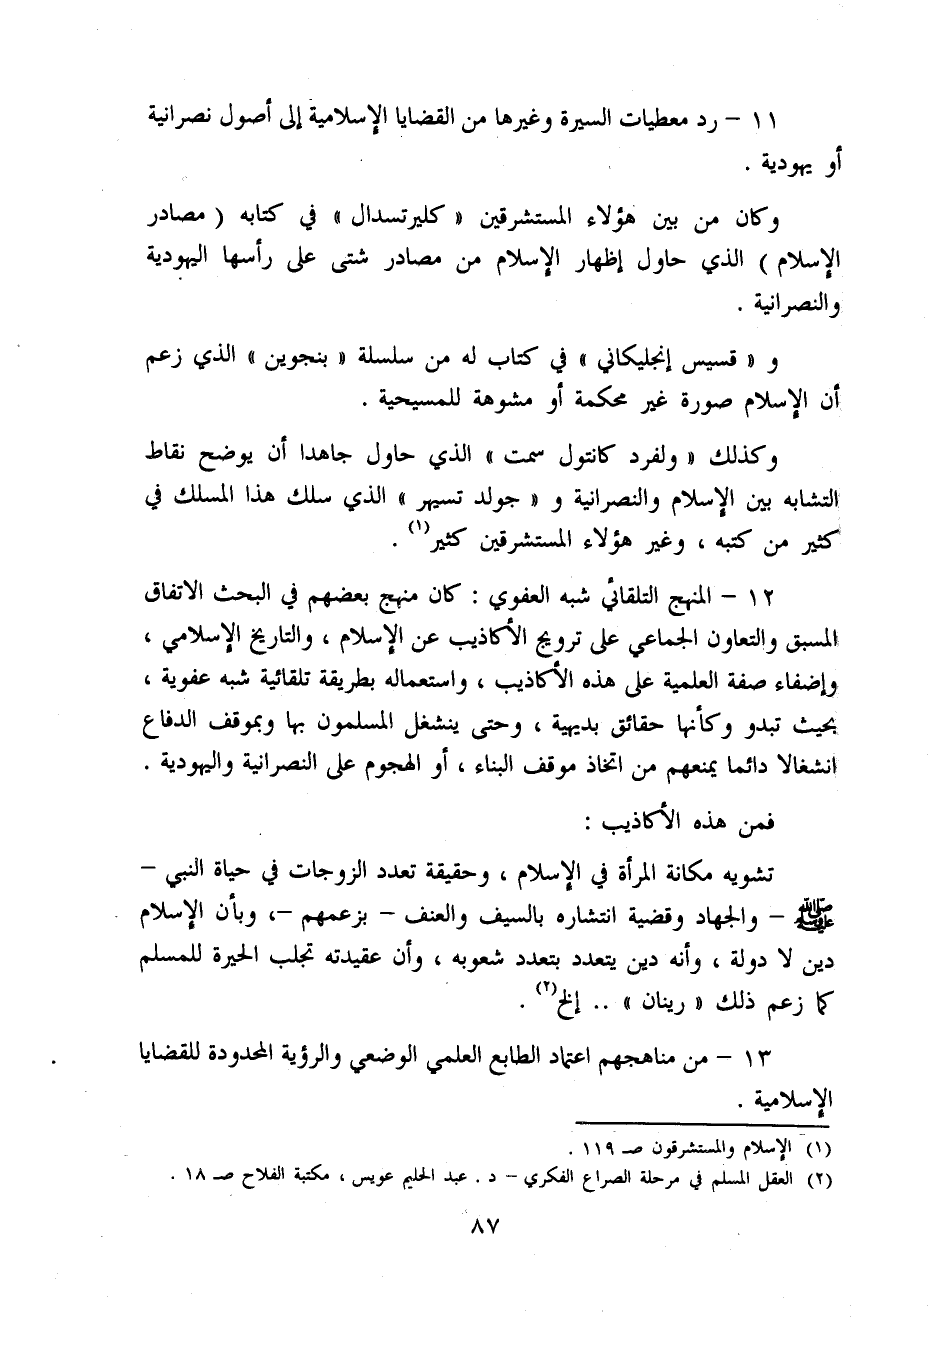 ١١ – رد معطيات السيرة وغيرها من القضايا الإسلامية إلى أصول نصرانية
أو يهودية .
وكان من بين هؤلاء المستشرقين « كليرتسدال » في كتابه ( مصادر
الإسلام ) الذي حاول إظهار الإسلام من مصادر شتى على رأسها اليهودية
والنصرانية .
و « قسيس إنجليكاني » في كتاب له من سلسلة « بنجوين » الذي زعم
أن الإسلام صورة غير محكمة أو مشوهة للمسيحية .
وكذلك « ولفرد كانتول سمت » الذي حاول جاهدا أن يوضح نقاط
التشابه بين الإسلام والنصرانية و « جولد تسيهر » الذي سلك هذا المسلك في
كثير من كتبه ، وغير هؤلاء المستشرقين كثير(١) .
١٢ – المنهج التلقائي شبه العفوي : كان منهج بعضهم في البحث الاتفاق
المسبق والتعاون الجماعي على ترويج الأكاذيب عن الإسلام ، والتاريخ الإسلامي ،
وإضفاء صفة العلمية على هذه الأكاذيب ، واستعماله بطريقة تلقائية شبه عفوية ،
بحيث تبدو وكأنها حقائق بديهية ، وحتى ينشغل المسلمون بها وبموقف الدفاع
انشغالا دائما يمنعهم من اتخاذ موقف البناء ، أو الهجوم على النصرانية واليهودية .
فمن هذه الأكاذيب :
تشويه مكانة المرأة في الإسلام ، وحقيقة تعدد الزوجات في حياة النبي –
ﷺ – والجهاد وقضية انتشاره بالسيف والعنف – بزعمهم –، وبأن الإسلام
دين لا دولة ، وأنه دين يتعدد بتعدد شعوبه ، وأن عقيدته تجلب الحيرة للمسلم
كما زعم ذلك « رينان » .. إلخ(٢) .
١٣ – من مناهجهم اعتماد الطابع العلمي الوضعي والرؤية المحدودة للقضايا
الإسلامية .
(١) الإسلام والمستشرقون صـ ١١٩ .
(٢) العقل المسلم في مرحلة الصراع الفكري – د . عبد الحليم عويس ، مكتبة الفلاح صـ ١٨ .
٨٧